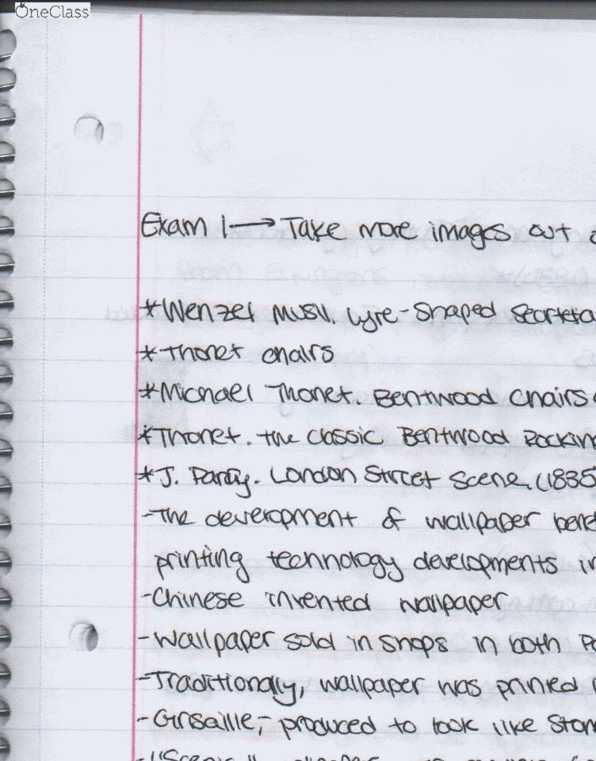 OneClass
Exam 1 → Take more images out
*Wenzel Musil. Lyre-Shaped Secreta
*Thonet chairs
*Michael Thonet. Bentwood Chairs
*Thonet. the classic Bentwood Rockin
*J. Parry. London Street Scene. (1835
-The development of wallpaper bene
printing technology developments in
-Chinese invented wallpaper
-Wallpaper sold in shops in both
-Traditionally, wallpaper was printed
-Grisaille, - produced to look like Ston